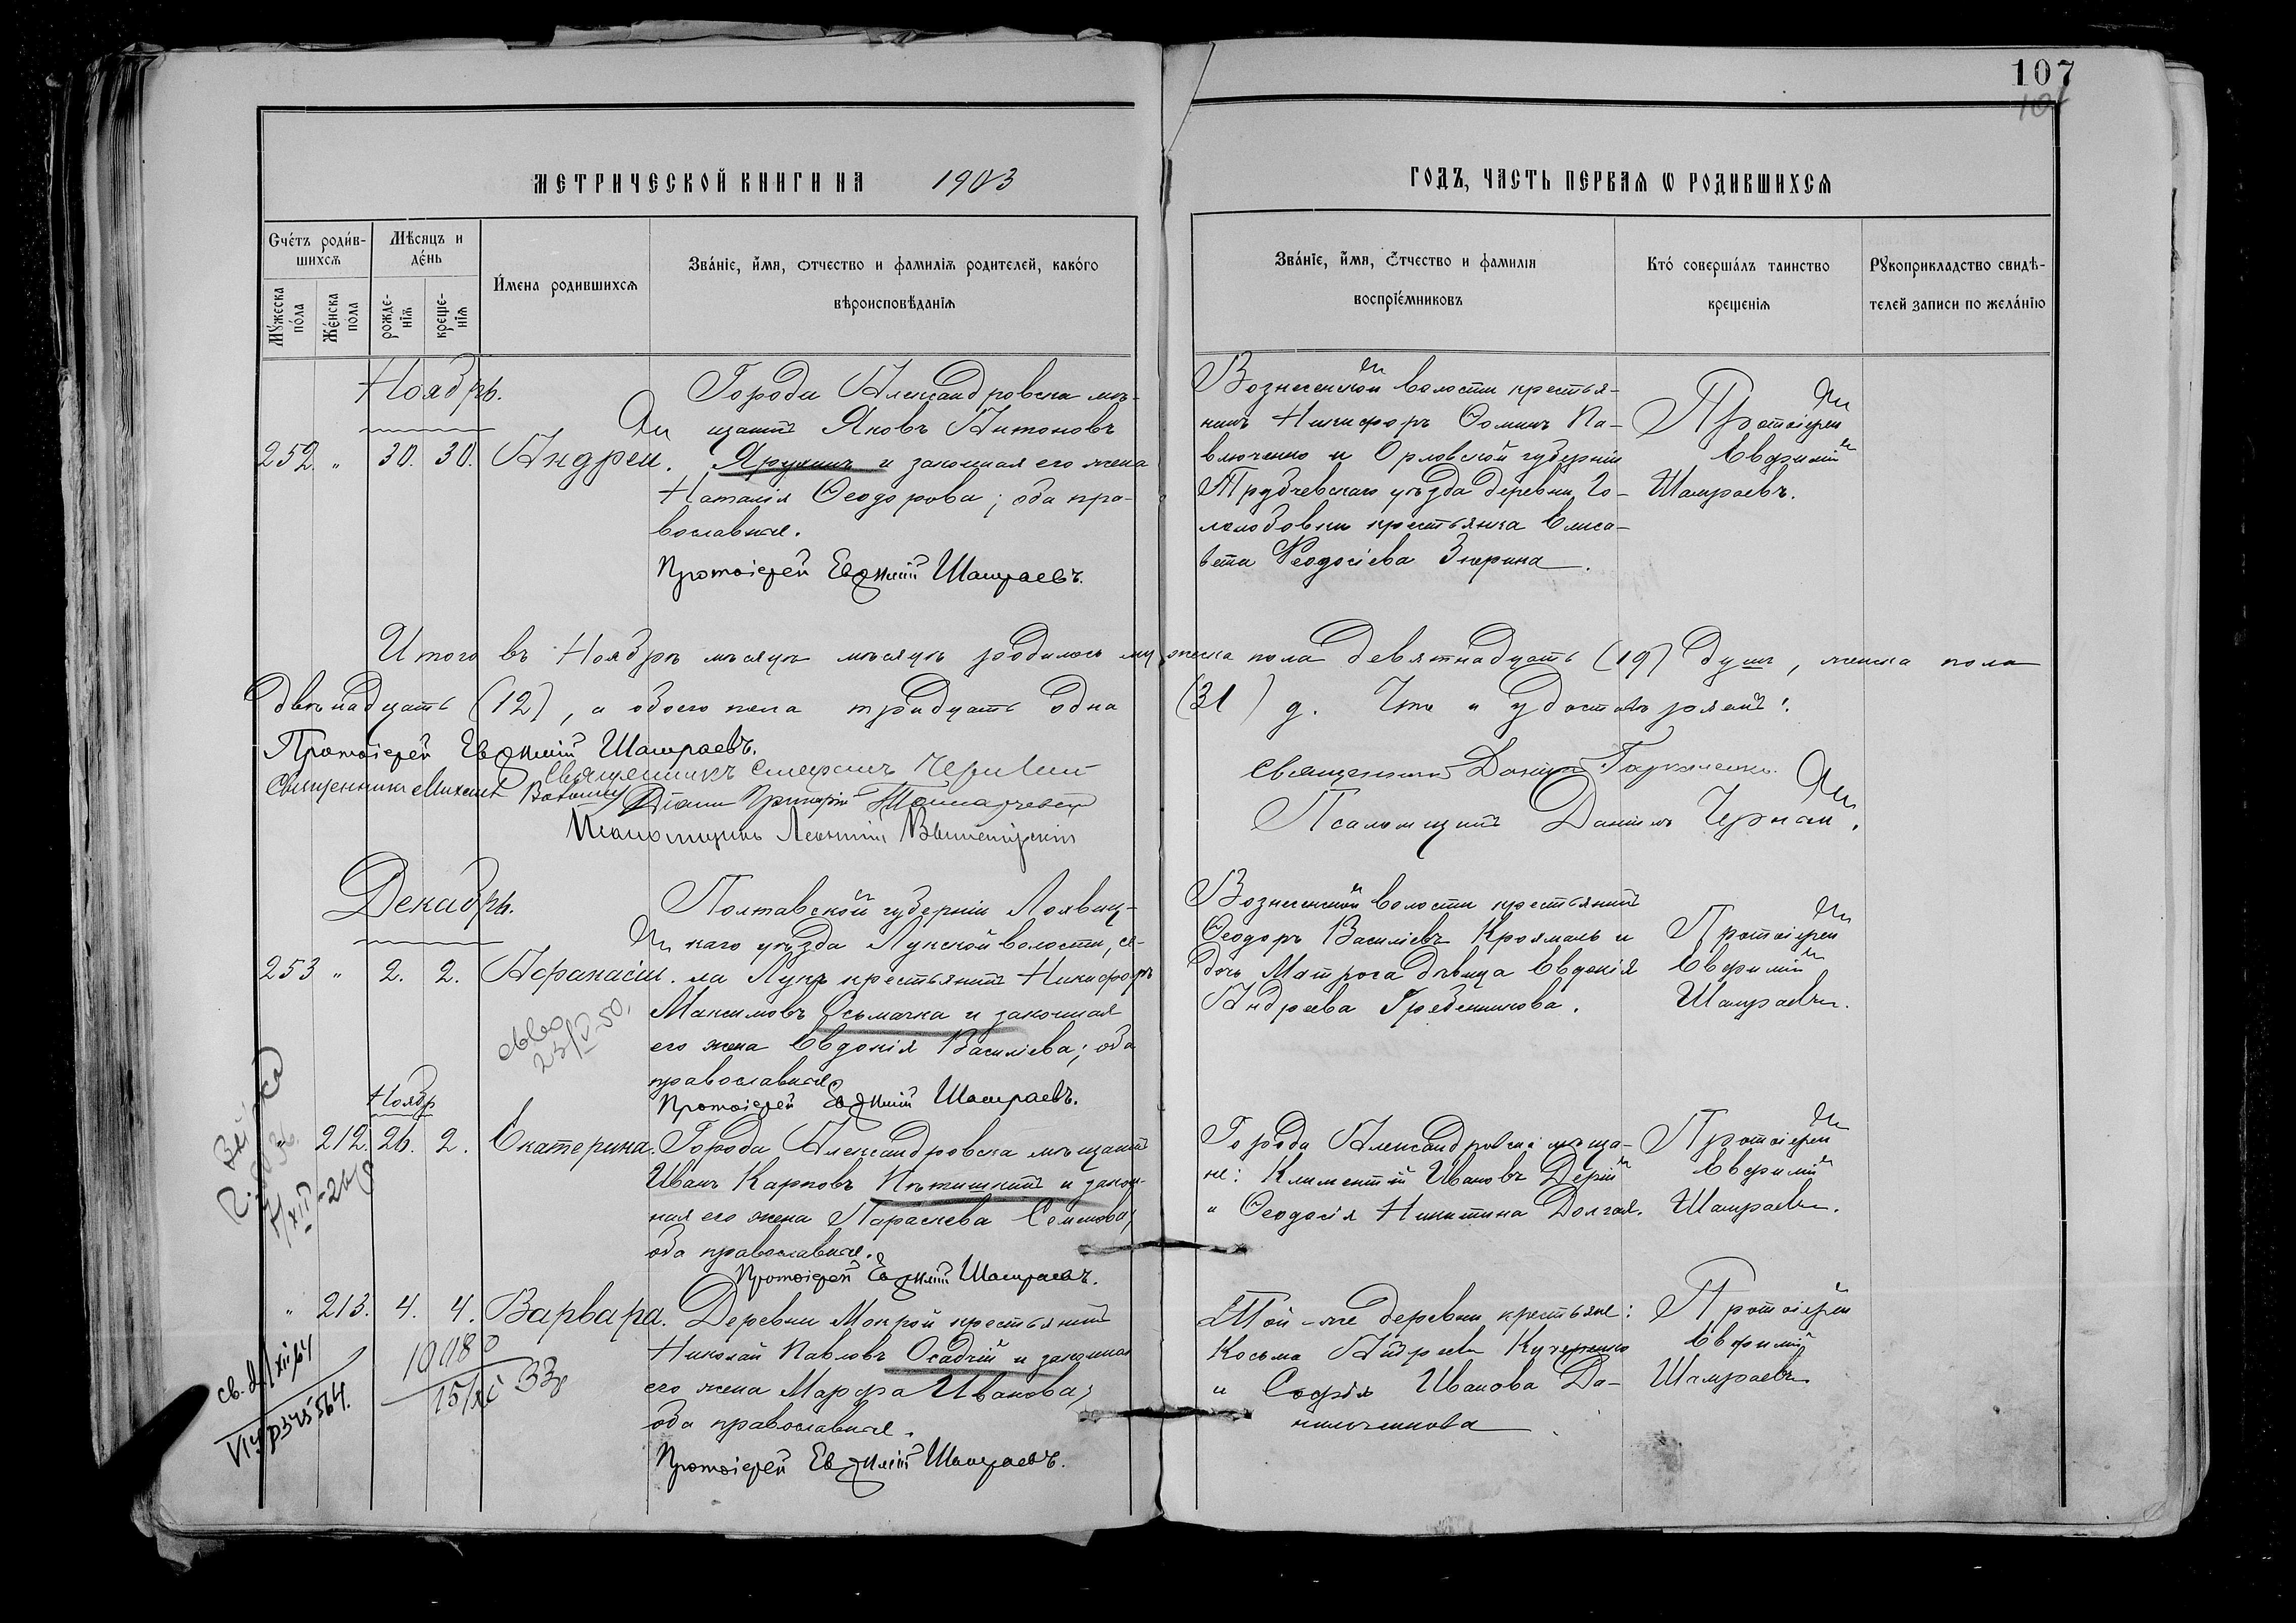 107
МЕТРИЧЕСКОЙ КНИГИ НА 1903 ГОДЪ, ЧАСТЬ ПЕРВАЯ Ѡ РОДИВШИХСЯ
Счётъ роди́в-
шихсѧ
Мѣсяцъ и
де́нь
Му́жеска
по́ла
Же́нска
пола
рожде-
нїѧ
креще-
нїѧ
И́мена родившихсѧ
Зва́нїе, и́мя, отчество и фамилїѧ родителей, како́го
вѣроисповѣданїѧ
Зва́нїе, и́мя, о́тчество и фамилїя
воспрїе́мниковъ
Кто́ соверша́лъ таинство
крещенїѧ
Рꙋкоприкладство свидѣ-
телей записи по жела́нїю
Ноябрь.
252. " 30. 30. Андрей.
Города Александровска мѣ-
щанинъ Яковъ Антоновъ
и законная его жена
Наталія Ѳеодорова; оба пра-
вославные.
Протоіерей Евѳимій Шамраевъ.
Вознесенской волости крестья-
нинъ Никифоръ Ѳоминъ Па-
вличенко и Орловской губерніи
Трубчевскаго уѣзда деревни Го-
лолобовки крестьянка Елиса-
вета Ѳеодосіева Зюрина.
Протоіерей
Евѳимій
Шамраевъ.
Итого въ Ноябрѣ мѣсяцѣ мѣсяцѣ родилось мужеска пола девятнадцать (19) душъ, женска пола
двѣнадцать (12), а обоего пола тридцать одна (31) д. Что и удостовѣряемъ:
Протоіерей Евѳимій Шамраевъ.
Священникъ
Священникъ Михаилъ
Діаконъ Григорій
Псаломщикъ Леонтій
Священникъ Даніилъ
Псаломщикъ Даніилъ Чернай.
Декабрь.
253 " 2. 2. Аѳанасій.
Полтавской губерніи Лохвиц-
каго уѣзда Лукской волости, се-
ла Лукъ крестьянинъ Никифоръ
Максимовъ Осьмачка и законная
его жена Евдокія Василіева; оба
православные.
Протоіерей Евѳимій Шамраевъ.
Вознесенской волости крестьянинъ
Ѳеодоръ Василіевъ Крохмаль и
дочь Матроса дѣвица Евдокія
Андреева Гребенникова.
Протоіерей
Евѳимій
Шамраевъ.
23/V-50.
Ноябр
" 212. 26. 2. Екатерина.
Города Александровска мѣщанинъ
Иванъ Карповъ и закон-
ная его жена Параскева Семенова;
оба православные.
Протоіерей Евѳимій Шамраевъ.
Города Александровска мѣща-
не: Климентій Ивановъ Дерій
и Ѳеодосія Никитина Долгая.
Протоіерей
Евѳимій
Шамраевъ.
" 213. 4. 4. Варвара.
Деревни Мокрой крестьянинъ
Николай Павловъ Осадчій и законная
его жена Марѳа Иванова;
оба православные.
Протоіерей Евѳимій Шамраевъ.
Той-же деревни крестьяне:
Косьма Андреевъ Кучеренко
и Софія Иванова Да-
ниличенкова
Протоіерей
Евѳимій
Шамраевъ